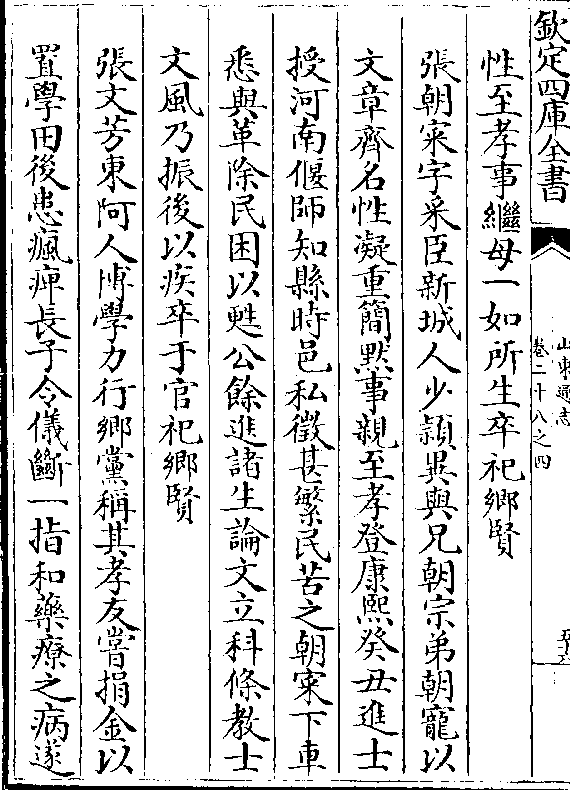 欽定四庫全書
山東通志
卷二十八之四
性至孝事繼母一如所生卒祀鄉賢
張朝寀字采臣新城人少穎異與兄朝宗弟朝寵以
文章齊名性凝重簡默事親至孝登康熙癸丑進士
授河南偃師知縣時邑私徵甚繁民苦之朝寀下車
悉與革除民困以甦公餘進諸生論文立科條教士
文風乃振後以疾卒于官祀鄉賢
張文芳東阿人博學力行鄉黨稱其孝友嘗捐金以
置學田後患瘋痺長子令儀斷一指和藥療之病遂